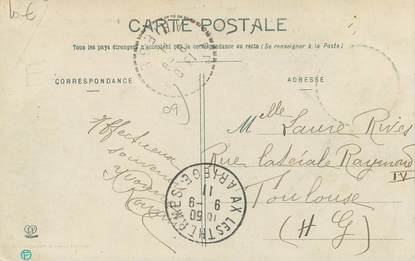 6€
CARTE POSTALE
Tous les pays étrangers n'acceptent pas la correspondance au recto (Se renseigner à la Poste)
CORRESPONDANCE
ADRESSE
09
Affectueux
souvenir
Melle Laure Rives
Rue latérale Raymond
IV
Toulouse
(H G)
AX LES THERMES
ARIEGE
10 50
9 - 9
11